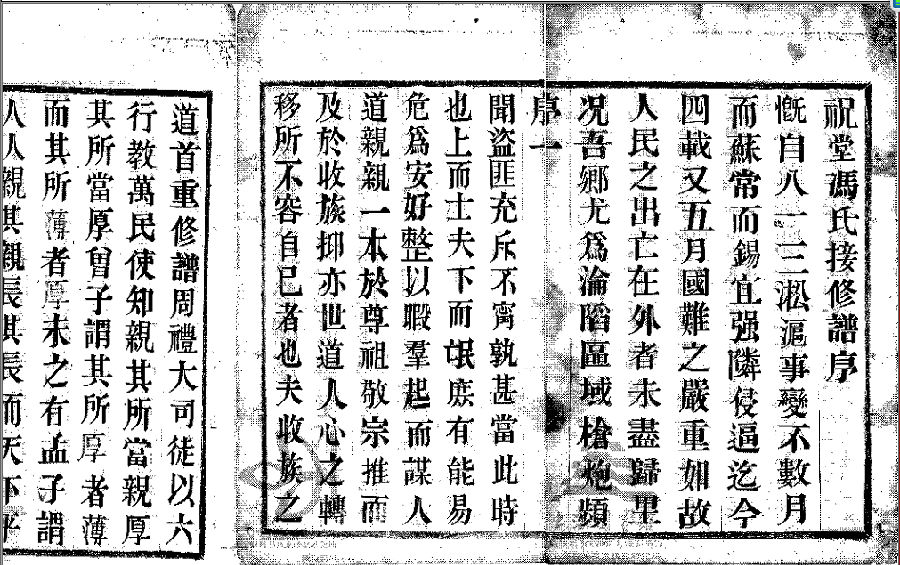 祝堂馮氏接修譜序
慨自八一三淞滬事變不數月
而蘇常而錫宜强隣侵逼迄今
四載又五月國難之嚴重如故
人民之出亡在外者未盡歸里
况吾鄉尤爲淪陷區域槍炮頻
序一
聞盜匪充斥不寗孰甚當此時
也上而士夫下而氓庶有能易
危爲安好整以暇羣起而謀人
道親親一本於尊祖敬宗推而
及於收族抑亦世道人心之轉
移所不容自已者也夫收族之
道首重修譜周禮大司徒以六
行教萬民使知親其所當親厚
其所當厚曾子謂其所厚者薄
而其所薄者厚未之有孟子謂
人人親其親長其長而天下平